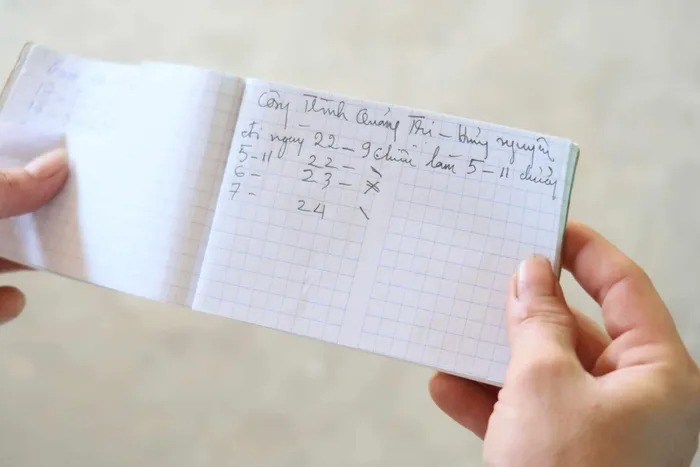 Công Trình Quảng Trị – hưng nguyên
đi ngày 22 – 9 chiều làm 5 – 11 chiều
5 – 11 22 – \
6 – 23 – x
7 – 24 \